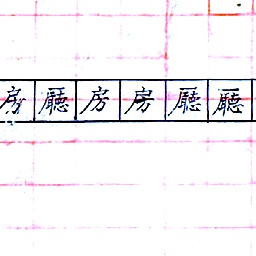 房廳房房廳廳